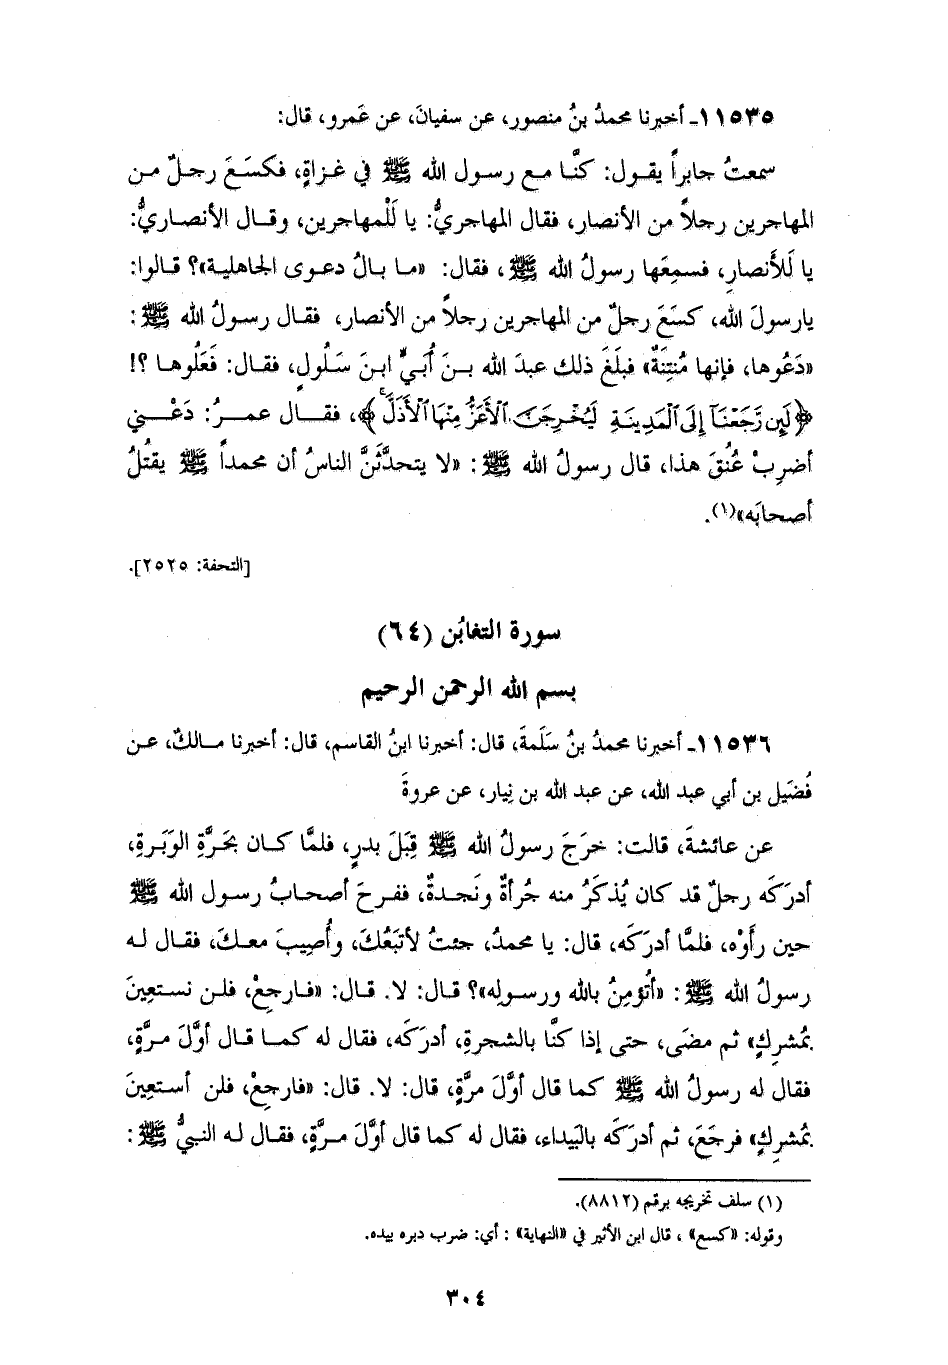 ١١٥٣٥ـ أخبرنا محمدُ بنُ منصور، عن سفيانَ، عن عَمرو، قال:
سمعتُ جابراً يقول: كنَّا مع رسول الله ﷺ في غزاةٍ، فكسَعَ رجلٌ من
المهاجرين رجلاً من الأنصار، فقال المهاجريُّ: يا لَلْمهاجرين، وقال الأنصاريُّ:
يا لَلأَنصارِ، فسمِعَها رسولُ الله ﷺ، فقال: «ما بالُ دعوى الجاهلية»؟ قالوا:
يارسولَ الله، كسَعَ رجلٌ من المهاجرين رجلاً من الأنصار، فقال رسولُ الله ﷺ:
«دَعُوها، فإنها مُنتِنَةٌ» فبلَغَ ذلك عبدَ الله بنَ أُبَيٍّ ابنَ سَلُولٍ، فقال: فَعَلُوها ؟!
﴿لَئِن رَّجَعْنَآ إِلَى ٱلْمَدِينَةِ لَيُخْرِجَنَّ ٱلْأَعَزُّ مِنْهَا ٱلْأَذَلَّ﴾، فقال عمرُ: دَعْني
أضرِبْ عُنُقَ هذا، قال رسولُ الله ﷺ: «لا يتحدَّثَنَّ الناسُ أن محمداً ﷺ يقتُلُ
أصحابَه»(١).
[التحفة: ٢٥٢٥].
سورة التغابُن (٦٤)
بسم الله الرحمن الرحيم
١١٥٣٦ـ أخبرنا محمدُ بنُ سَلَمةَ، قال: أخبرنا ابنُ القاسم، قال: أخبرنا مالكٌ، عن
فُضَيل بن أبي عبد الله، عن عبد الله بن نِيار، عن عروةَ
عن عائشةَ، قالت: خرَجَ رسولُ الله ﷺ قِبَلَ بدرٍ، فلمَّا كان بحَرَّةِ الوَبَرةِ،
أدرَكَه رجلٌ قد كان يُذكَرُ منه جُرأةٌ ونَجدةٌ، ففرحَ أصحابُ رسول الله ﷺ
حين رأَوْه، فلمَّا أدرَكَه، قال: يا محمدُ، جئتُ لأتبَعُكَ، وأُصِيبَ معكَ، فقال له
رسولُ الله ﷺ: «أتُؤمِنُ بالله ورسولِه»؟ قال: لا. قال: «فارجِعْ، فلن نستعِينَ
بمُشرِكٍ» ثم مضَى، حتى إذا كنَّا بالشجرةِ، أدرَكَه، فقال له كما قال أوَّلَ مرَّةٍ،
فقال له رسولُ الله ﷺ كما قال أوَّلَ مرَّةٍ، قال: لا. قال: «فارجِعْ، فلن أستعِينَ
بمُشرِكٍ» فرجَعَ، ثم أدرَكَه بالبَيداء، فقال له كما قال أوَّلَ مرَّةٍ، فقال له النبيُّ ﷺ:
(١) سلف تخريجه برقم (٨٨١٢).
وقوله: «كسع» ، قال ابن الأثير في «النهاية» : أي: ضرب دبره بيده.
٣٠٤